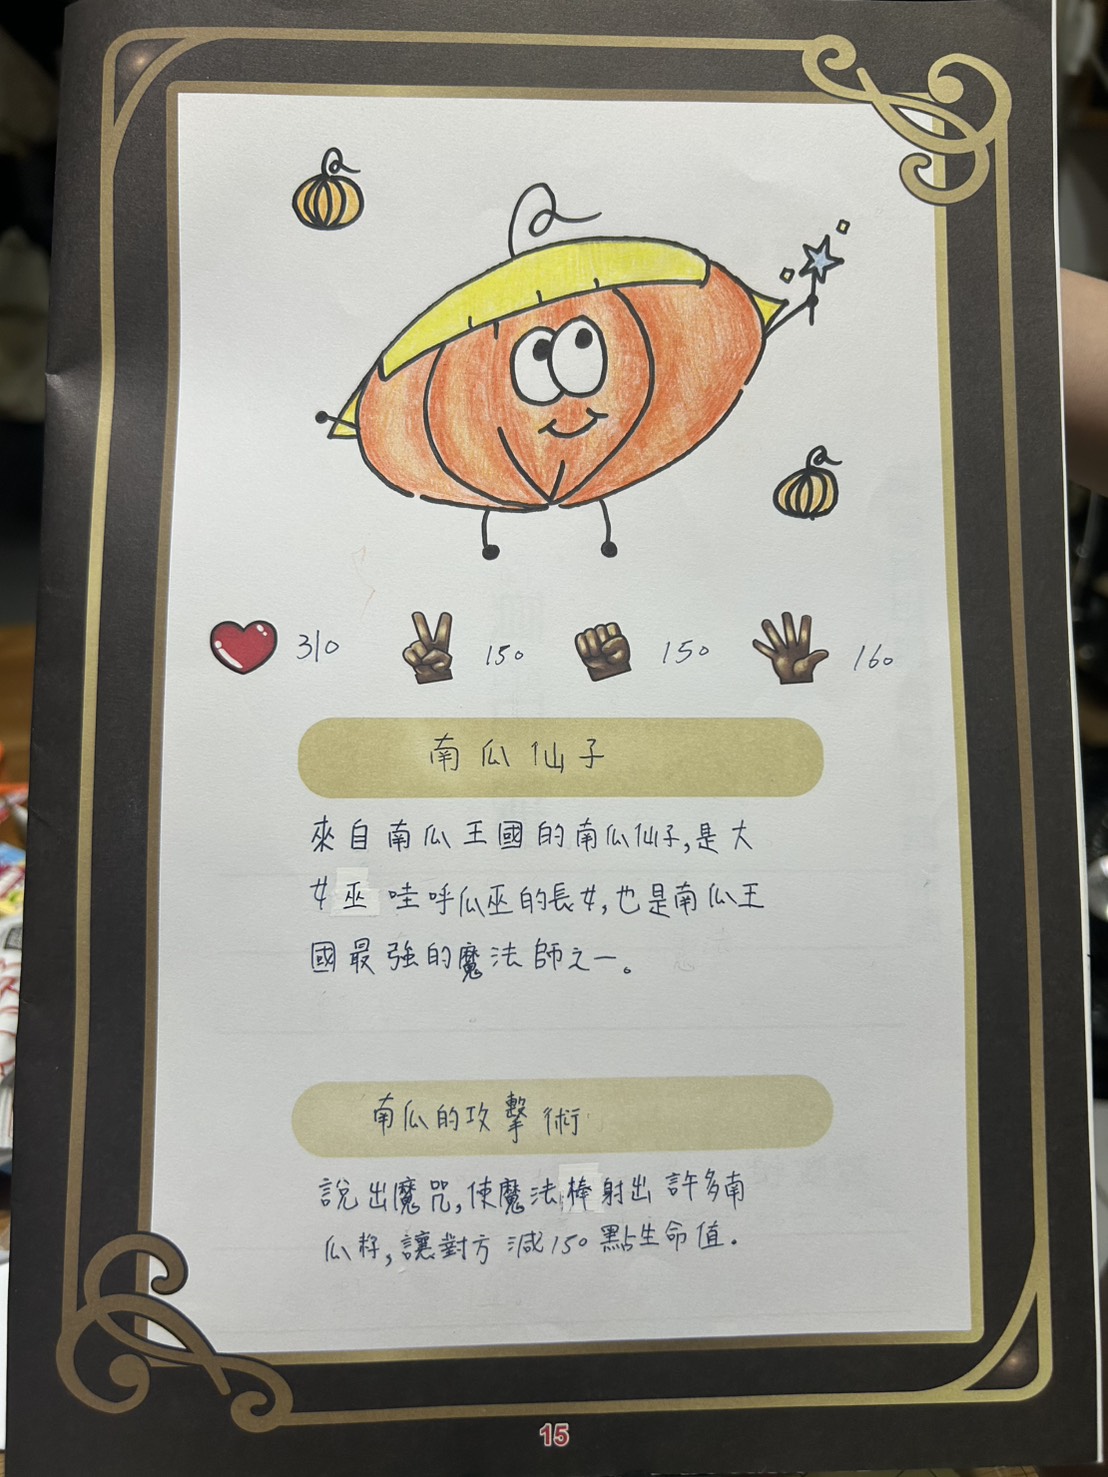 310 150 150 160
南瓜仙子
來自南瓜王國的南瓜仙子,是大
女巫哇呼瓜巫的長女,也是南瓜王
國最強的魔法師之一。
南瓜的攻擊術
說出魔咒,使魔法棒射出許多南
瓜籽,讓對方減150點生命值.
15